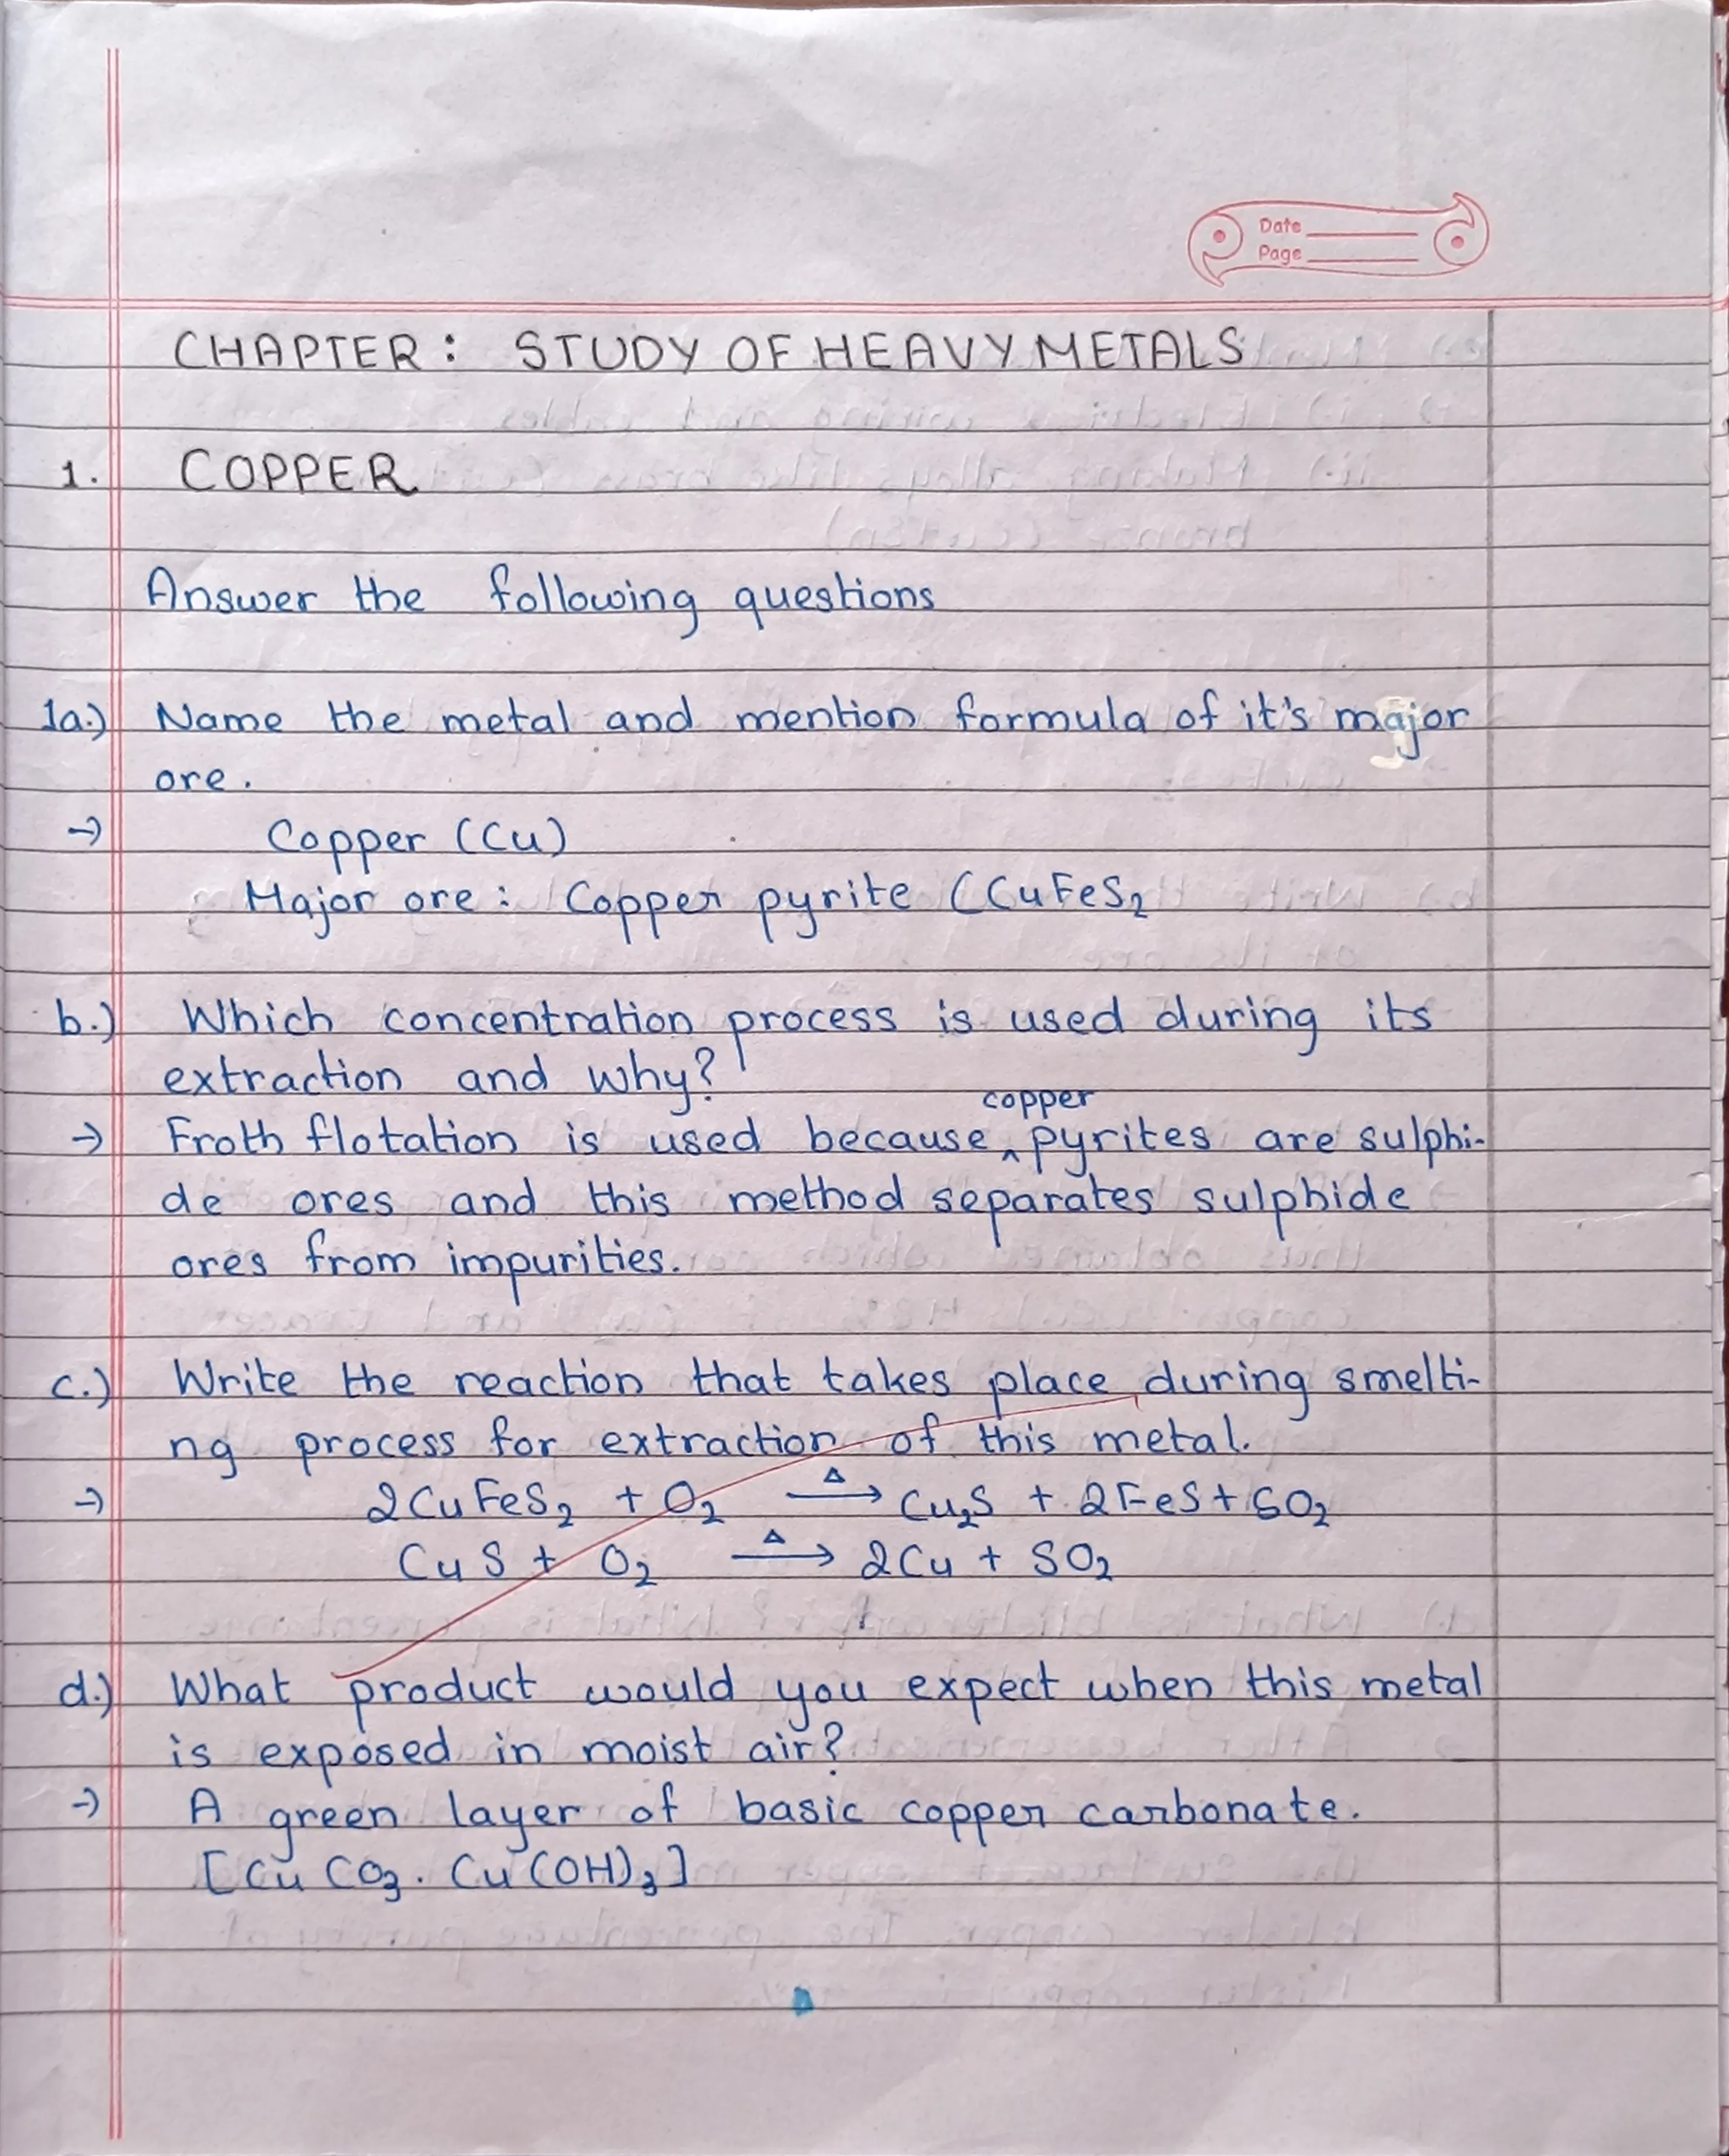 Date
Page
CHAPTER : STUDY OF HEAVY METALS
1. COPPER
Answer the following questions
1a.) Name the metal and mention formula of it's major
ore.
→ Copper (Cu)
Major ore : Copper pyrite (CuFeS₂
b.) Which concentration process is used during its
extraction and why?
copper
→ Froth flotation is used because ^ pyrites are sulphi-
de ores and this method separates sulphide
ores from impurities.
c.) Write the reaction that takes place during smelti-
ng process for extraction of this metal.
→ 2CuFeS₂ + O₂ —Δ→ Cu₂S + 2FeS + SO₂
CuS + O₂ —Δ→ 2Cu + SO₂
d.) What product would you expect when this metal
is exposed in moist air?
→ A green layer of basic copper carbonate.
[CuCO₃. Cu(OH)₃]